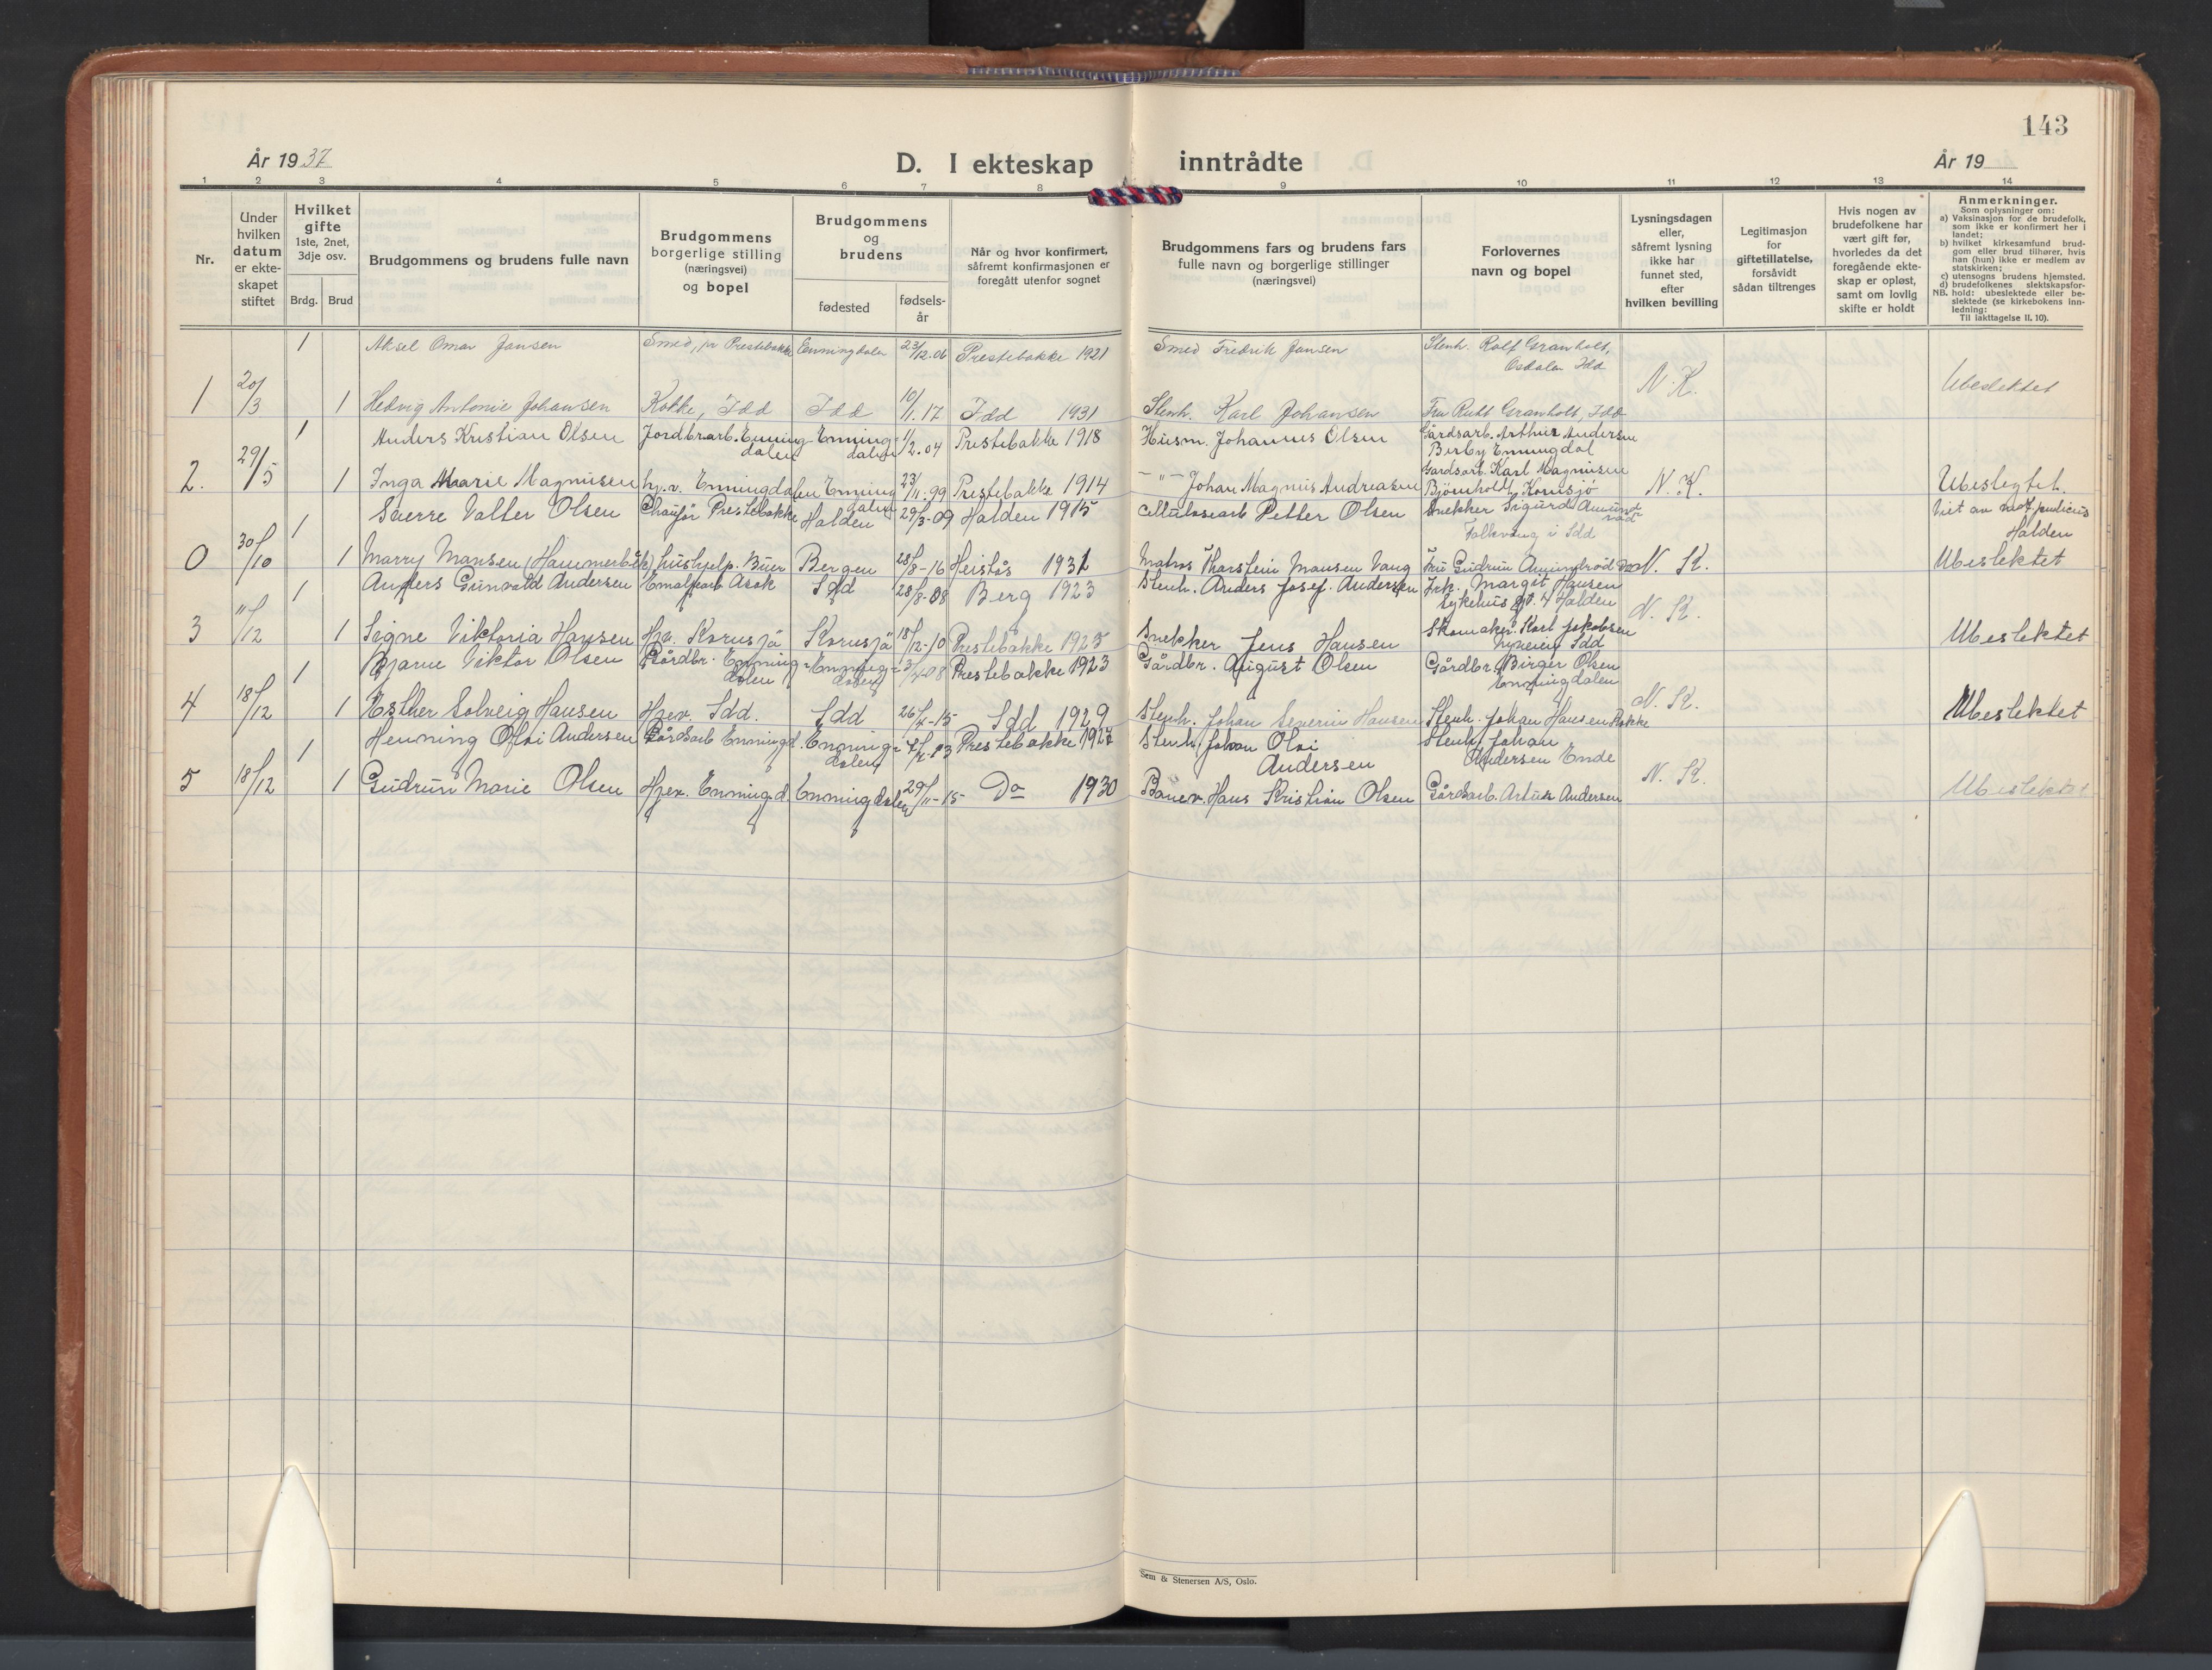 143
År 1937
D. I ekteskap inntrådte
År 19
1 2 3 4 5 6 7 8 9 10 11 12 13 14
Nr.
Under hvilken datum er ekteskapet stiftet
Hvilket gifte 1ste, 2net, 3dje osv.
Brdg. Brud
Brudgommens og brudens fulle navn
Brudgommens borgerlige stilling (næringsvei) og bopel
Brudgommens og brudens
fødested
fødselsår
Når og hvor konfirmert, såfremt konfirmasjonen er foregått utenfor sognet
Brudgommens fars og brudens fars fulle navn og borgerlige stillinger (næringsvei)
Forlovernes navn og bopel
Lysningsdagen eller, såfremt lysning ikke har funnet sted, efter hvilken bevilling
Legitimasjon for giftetillatelse, forsåvidt sådan tiltrenges
Hvis nogen av brudefolkene har vært gift før, hvorledes da det foregående ekteskap er opløst, samt om lovlig skifte er holdt
Anmerkninger.
Som oplysninger om:
a) Vaksinasjon for de brudefolk, som ikke er konfirmert her i landet;
b) hvilket kirkesamfund brudgom eller brud tilhører, hvis han (hun) ikke er medlem av statskirken;
c) utensogns brudens hjemsted.
d) brudefolkenes slektskapsforhold: ubeslektede eller beslektede (se kirkebokens innledning:
NB.
Til iakttagelse II. 10).
1 Aksel Omar Jansen Smed, pr Prestebakke Enningdalen 23/12.06 Prestebakke 1921 Smed Fredrik Jansen Stenh. Rolf Granholt, Osdalen Idd
1 20/3 1 Hedvig Antonie Johansen Kokke, Idd Idd 10/11.17 Idd 1931 Stenh. Karl Johansen Fru Ruth Granholt, Idd N. K. Ubeslektet
1 Anders Kristian Olsen Jordbrarb. Enningdalen Enningdalen 1/2.04 Prestebakke 1918 Husm. Johannes Olsen Gårdsarb. Arthur Andersen Berby Enningdal
2. 29/5 1 Inga Marie Magnusen hv. Enningdalen Enningdalen 23/11.99 Prestebakke 1914 -"- Johan Magnus Andreasen Gardsarb. Karl Magnusen Bjørnholdt, Kornsjø N. K. Ubeslegtet.
1 Sverre Valter Olsen Chaufør Prestebakke Halden 29/3-09 Halden 1915 Cellulosearb Petter Olsen Snekker Sigurd Amundrød Falkevang i Idd Viet av not. publicus Halden
0 30/10 1 Marry Mansen (Hammerbäk) hushjelp. Buer Bergen 28/8-16 Heistås 1931 Matros Thorstein Mansen Vang Fru Gudrun Amundrød Do N. K. Ubeslektet
1 Anders Gunvald Andersen Emaljearb Asak Idd 28/8-08 Berg 1923 Stenh. Anders Josef. Andersen Frk. Margit Hansen Sykehusgt. 4 Halden
3 11/12 1 Signe Viktoria Hansen Hjv. Kornsjø Kornsjø 18/12-10 Prestebakke 1925 Snekker Jens Hansen Skomaker. Karl Jakobsen Idd N. K. Ubeslektet
1 Bjarne Viktor Olsen Gårdbr. Enningdalen Enningdalen 3/4 08 Prestebakke 1923 Gårdbr. August Olsen Gårdbr. Birger Olsen Enningdalen
4 18/12 1 Esther Solveig Hansen Hjev. Idd. Idd 26/4-15 Idd 1929 Stenh. Johan Severin Hansen Stenh. Johan Hansen Bakke N. K. Ubeslektet
1 Henning Olvi Andersen Gårdsarb Enningd. Enningdalen 13 Prestebakke 1927 Stenh. Johan Olvi Andersen Stenh. Johan Andersen Ende
5 18/12 1 Gudrun Marie Olsen Hjev. Enningd. Enningdalen 29/11-15 Do 1930 Banev. Hans Kristian Olsen Gårdsarb. Artur Andersen N. K. Ubeslektet
Sem & Stenersen A/S, Oslo.